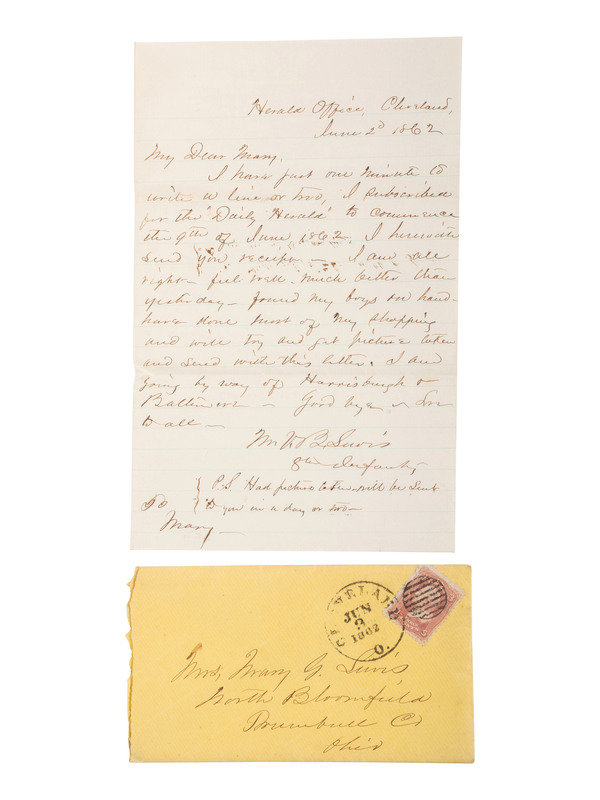 Herald Office, Cleveland,
June 2d 1862
My Dear Mary,
I have just one minute to
write a line or two, I subscribed
for the "Daily Herald" to commence
the 9th of June 1862. I herewith
send you receipt — I am all
right — feel well much better than
yesterday — found my boys on hand —
have done most of my shopping
and will try and get picture taken
and send with this letter. I am
going by way of Harrisburgh &
Baltimore — Good bye — 
to all —
M. V. B. Lewis
8th Infant,
P.S. Had picture taken will be sent
to you in a day or two —
To
Mary —
CLEVELAND
JUN
1862
O.
Mrs Mary G. Lewis
North Bloomfield
Trumbull Co
Ohio